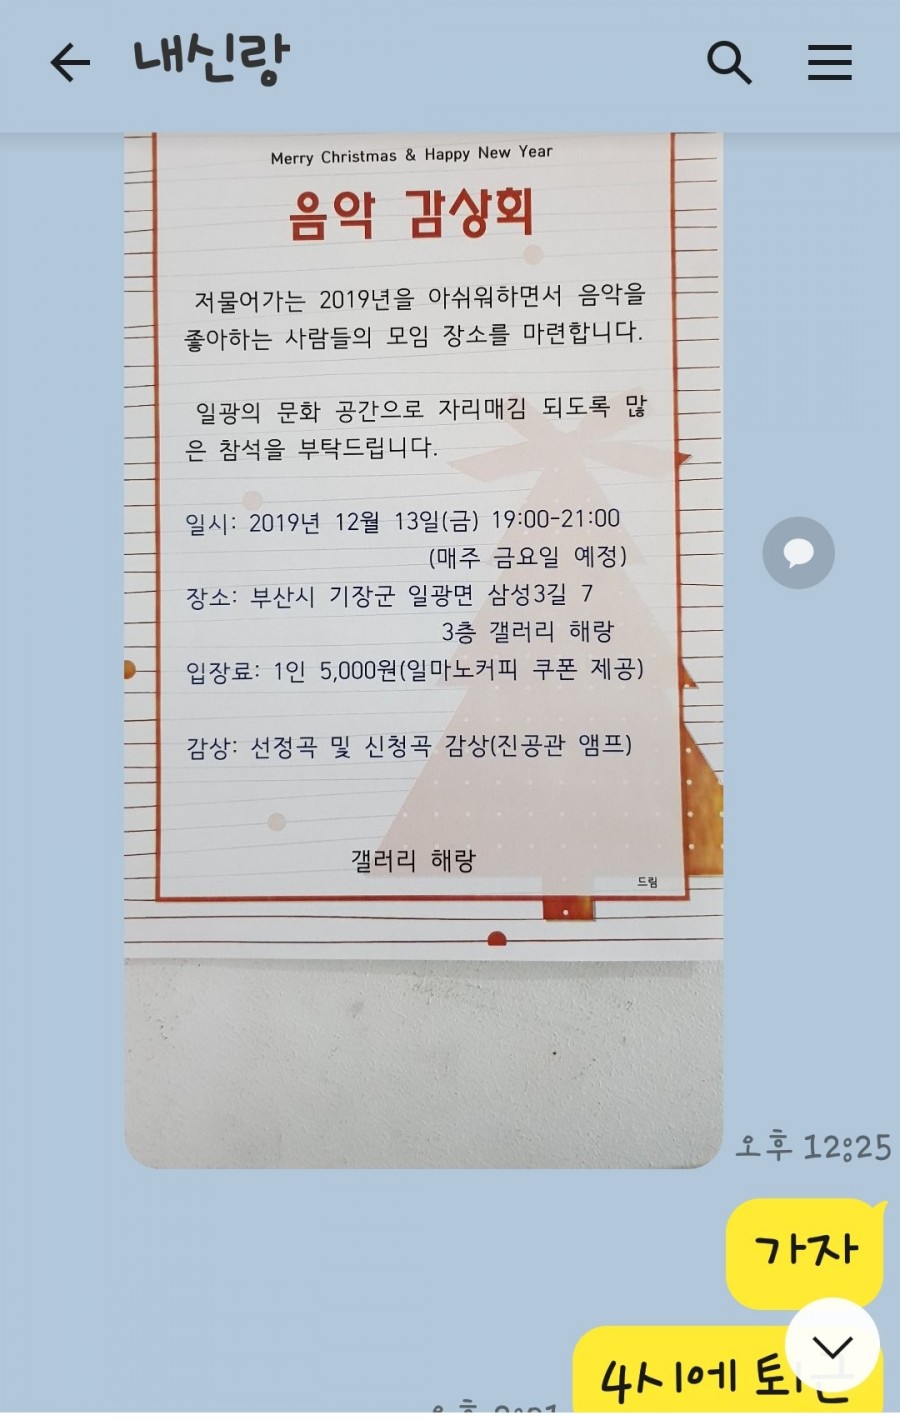 내신랑
Merry Christmas & Happy New Year
음악 감상회
저물어가는 2019년을 아쉬워하면서 음악을
좋아하는 사람들의 모임 장소를 마련합니다.
일광의 문화 공간으로 자리매김 되도록 많
은 참석을 부탁드립니다.
일시: 2019년 12월 13일(금) 19:00-21:00
(매주 금요일 예정)
장소: 부산시 기장군 일광면 삼성3길 7
3층 갤러리 해랑
입장료: 1인 5,000원(일마노커피 쿠폰 제공)
감상: 선정곡 및 신청곡 감상(진공관 앰프)
갤러리 해랑
드림
오후 12:25
가자
4시에